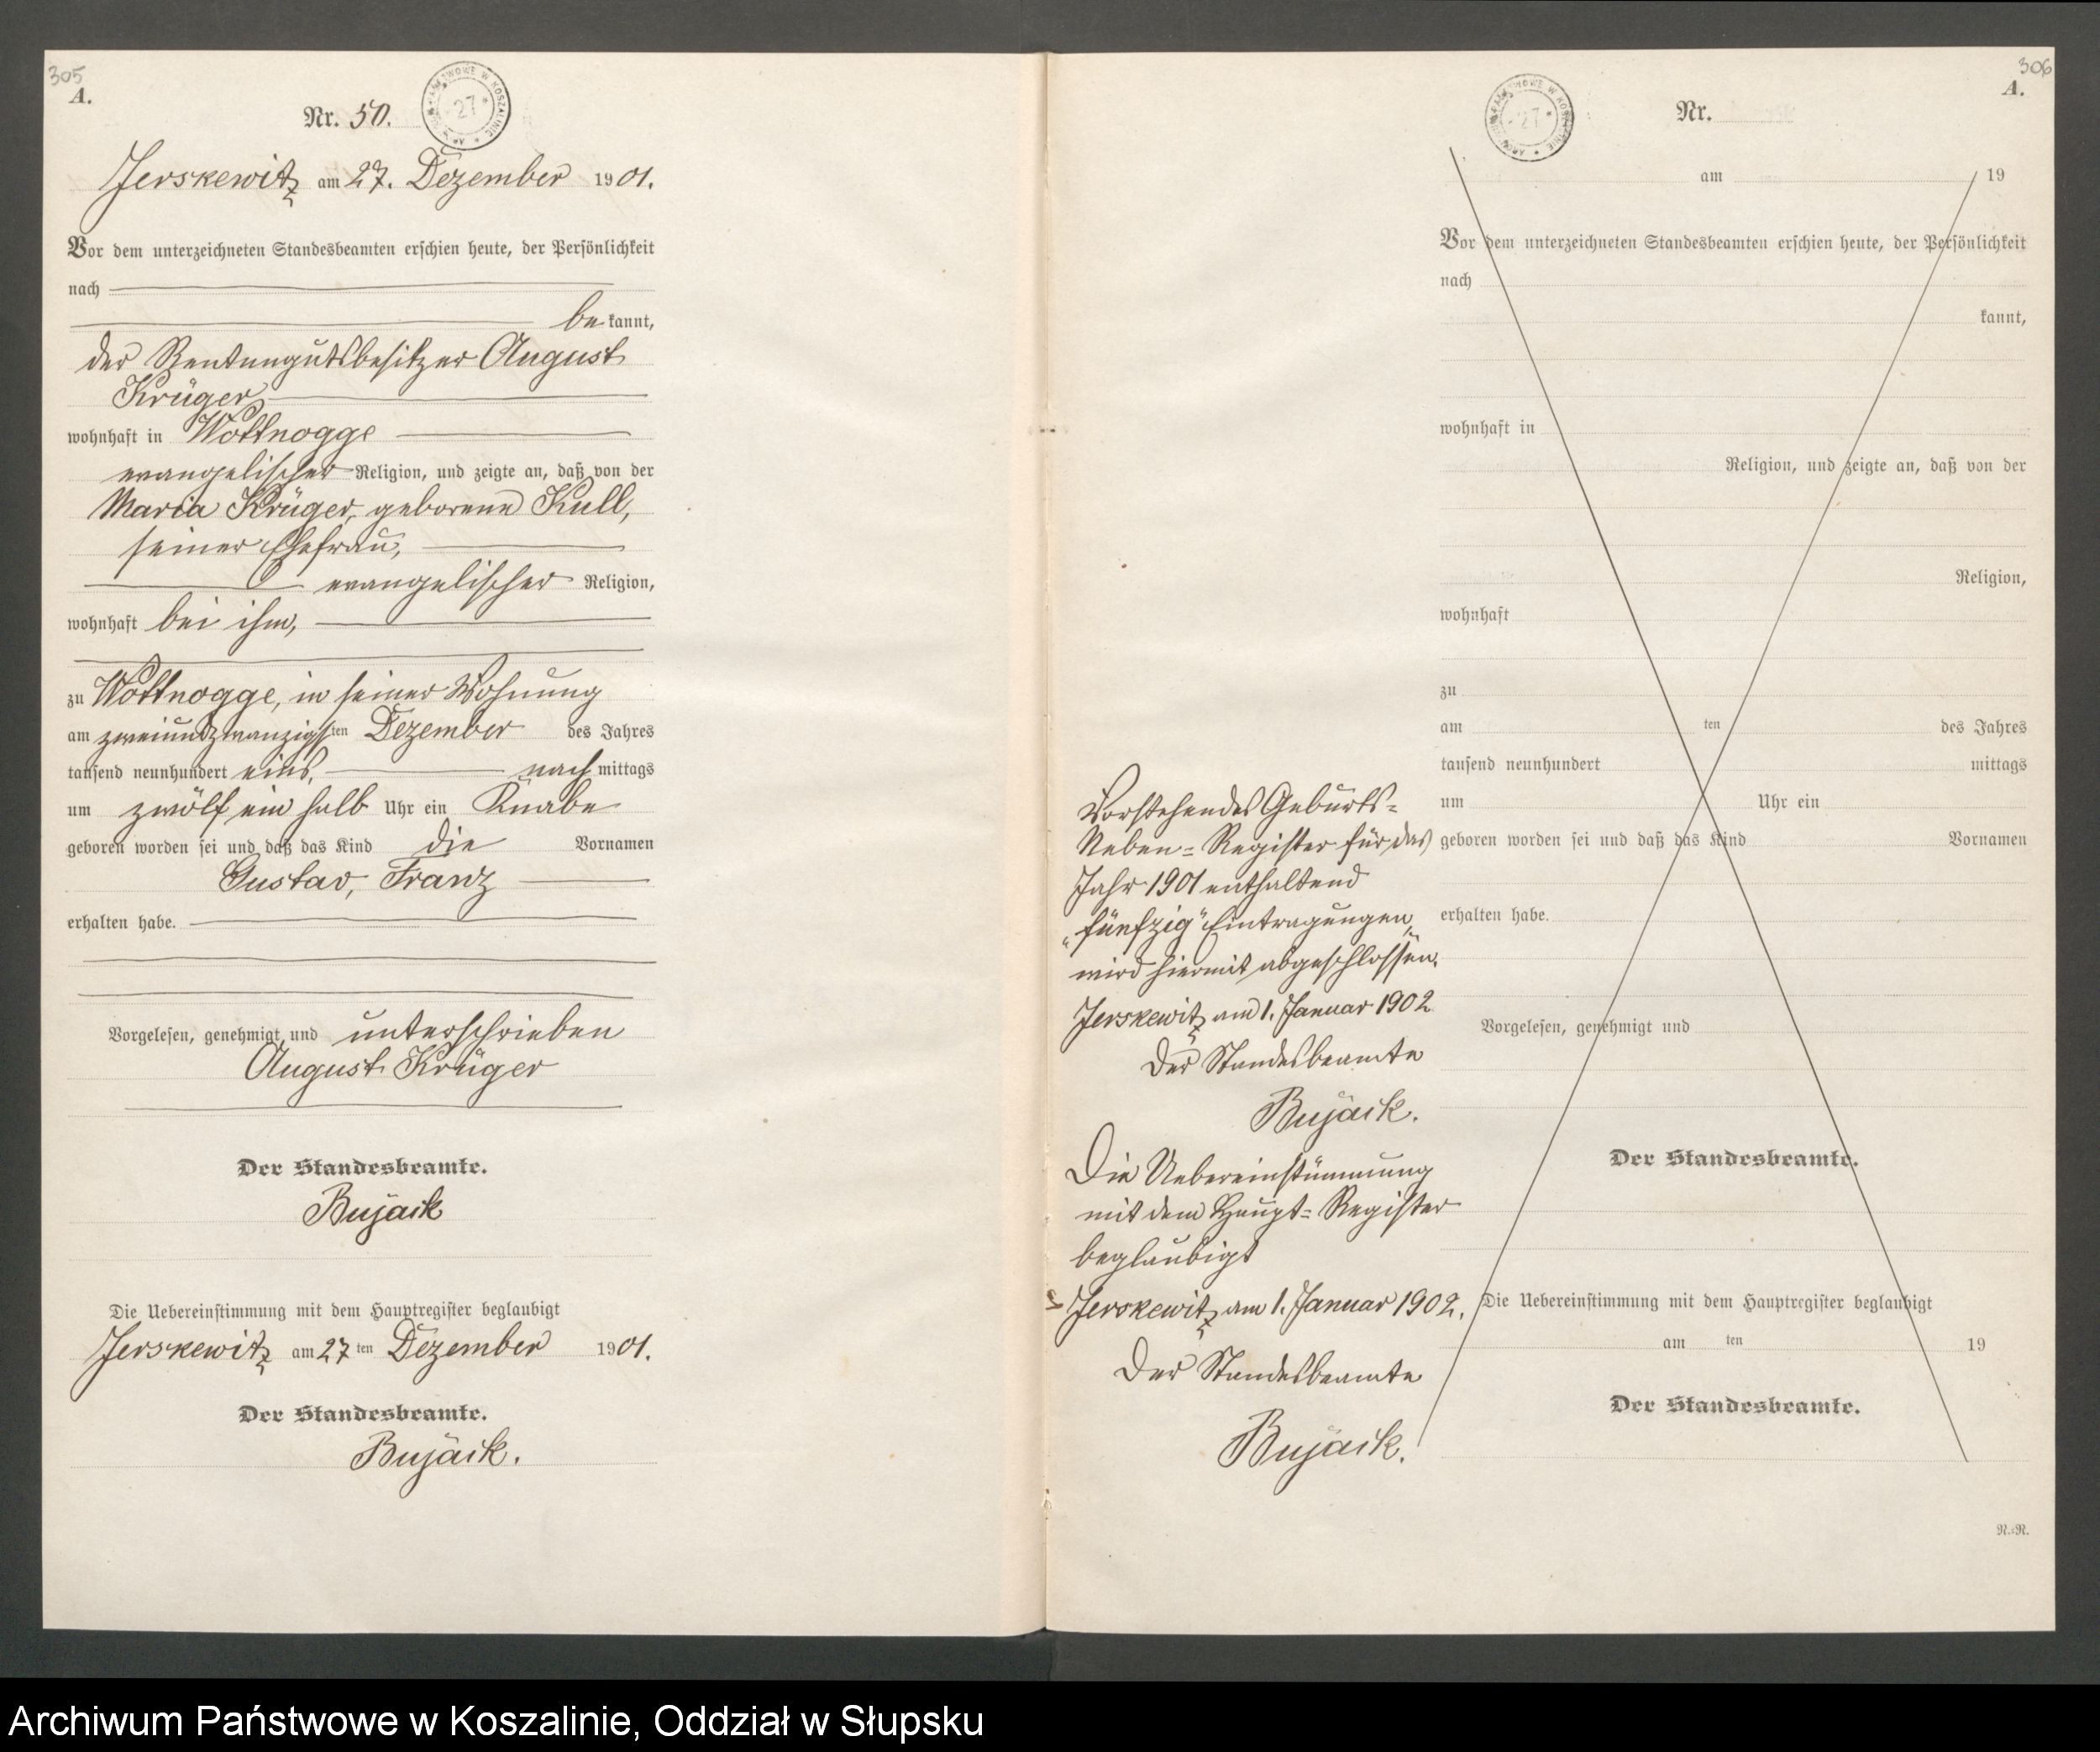 305
A.
Nr. 50.
Jerskewitz am 27. Dezember 1901.
Vor dem unterzeichneten Standesbeamten erschien heute, der Persönlichkeit
nach
be kannt,
der Rentengutsbesitzer August
Krüger,
wohnhaft in Wottnogge
evangelischer Religion, und zeigte an, daß von der
Maria Krüger, geborene Kull,
seiner Ehefrau,
evangelischer Religion,
wohnhaft bei ihm,
zu Wottnogge, in seiner Wohnung
am zweiundzwanzigsten Dezember des Jahres
tausend neunhundert eins, nach mittags
um zwölf ein halb Uhr ein Knabe
geboren worden sei und daß das Kind die Vornamen
Gustav, Franz
erhalten habe.
Vorgelesen, genehmigt und unterschrieben
August Krüger
Der Standesbeamte.
Bujack
Die Uebereinstimmung mit dem Hauptregister beglaubigt
Jerskewitz am 27 ten Dezember 1901.
Der Standesbeamte.
Bujack.
306
A.
Nr.
am 19
Vor dem unterzeichneten Standesbeamten erschien heute, der Persönlichkeit
nach
kannt,
wohnhaft in
Religion, und zeigte an, daß von der
Religion,
wohnhaft
zu
am ten des Jahres
tausend neunhundert mittags
um Uhr ein
geboren worden sei und daß das Kind Vornamen
erhalten habe.
Vorgelesen, genehmigt und
Der Standesbeamte.
Die Uebereinstimmung mit dem Hauptregister beglaubigt
am ten 19
Der Standesbeamte.
N.=R.
Vorstehendes Geburts=
Neben=Register für das
Jahr 1901 enthaltend
"fünfzig" Eintragungen,
wird hiermit abgeschlossen.
Jerskewitz am 1. Januar 1902
Der Standesbeamte
Bujack.
Die Uebereinstimmung
mit dem Haupt=Register
beglaubigt
Jerskewitz am 1. Januar 1902.
Der Standesbeamte
Bujack.
Archiwum Państwowe w Koszalinie, Oddział w Słupsku